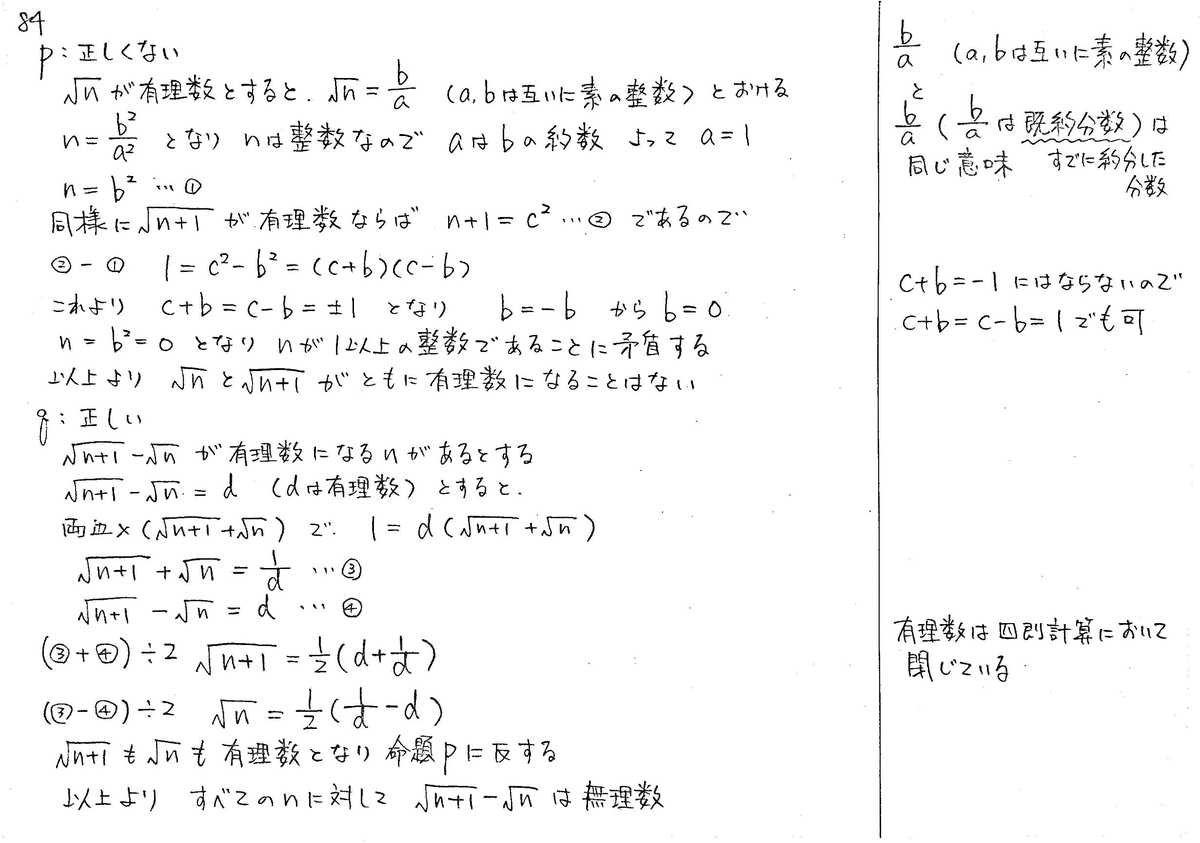 84
p：正しくない
√n が有理数とすると. √n = b/a （a,bは互いに素の整数）とおける
n = b²/a² となり nは整数なので aはbの約数 よって a=1
n = b² … ①
同様に √(n+1) が有理数ならば n+1 = c² … ② であるので
② − ① 1 = c² − b² = (c+b)(c−b)
これより c+b = c−b = ±1 となり b = −b から b = 0
n = b² = 0 となり nが1以上の整数であることに矛盾する
以上より √n と √(n+1) がともに有理数になることはない
q：正しい
√(n+1) − √n が有理数になるnがあるとする
√(n+1) − √n = d （dは有理数）とすると.
両辺×(√(n+1) + √n) で. 1 = d(√(n+1) + √n)
√(n+1) + √n = 1/d … ③
√(n+1) − √n = d … ④
(③+④)÷2 √(n+1) = 1/2(d + 1/d)
(③−④)÷2 √n = 1/2(1/d − d)
√(n+1) も √n も 有理数となり 命題pに反する
以上より すべてのnに対して √(n+1) − √n は無理数
b/a （a,bは互いに素の整数）
と
b/a（b/a は既約分数）は
同じ意味 すでに約分した
分数
c+b = −1 にはならないので
c+b = c−b = 1 でも可
有理数は四則計算において
閉じている